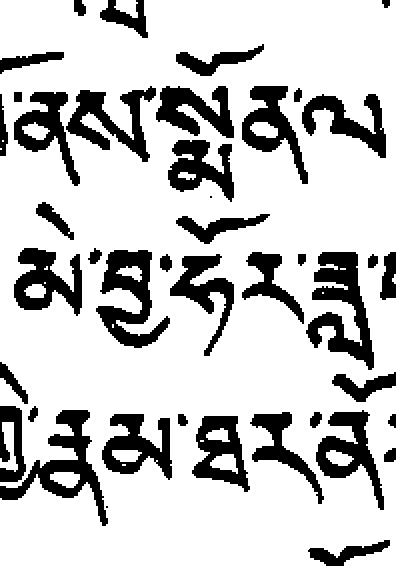 ནས་སྨོན་ལ
མེ་བྱ་ཧོར་ཟླ་
རྣམ་ཐར་ནོ